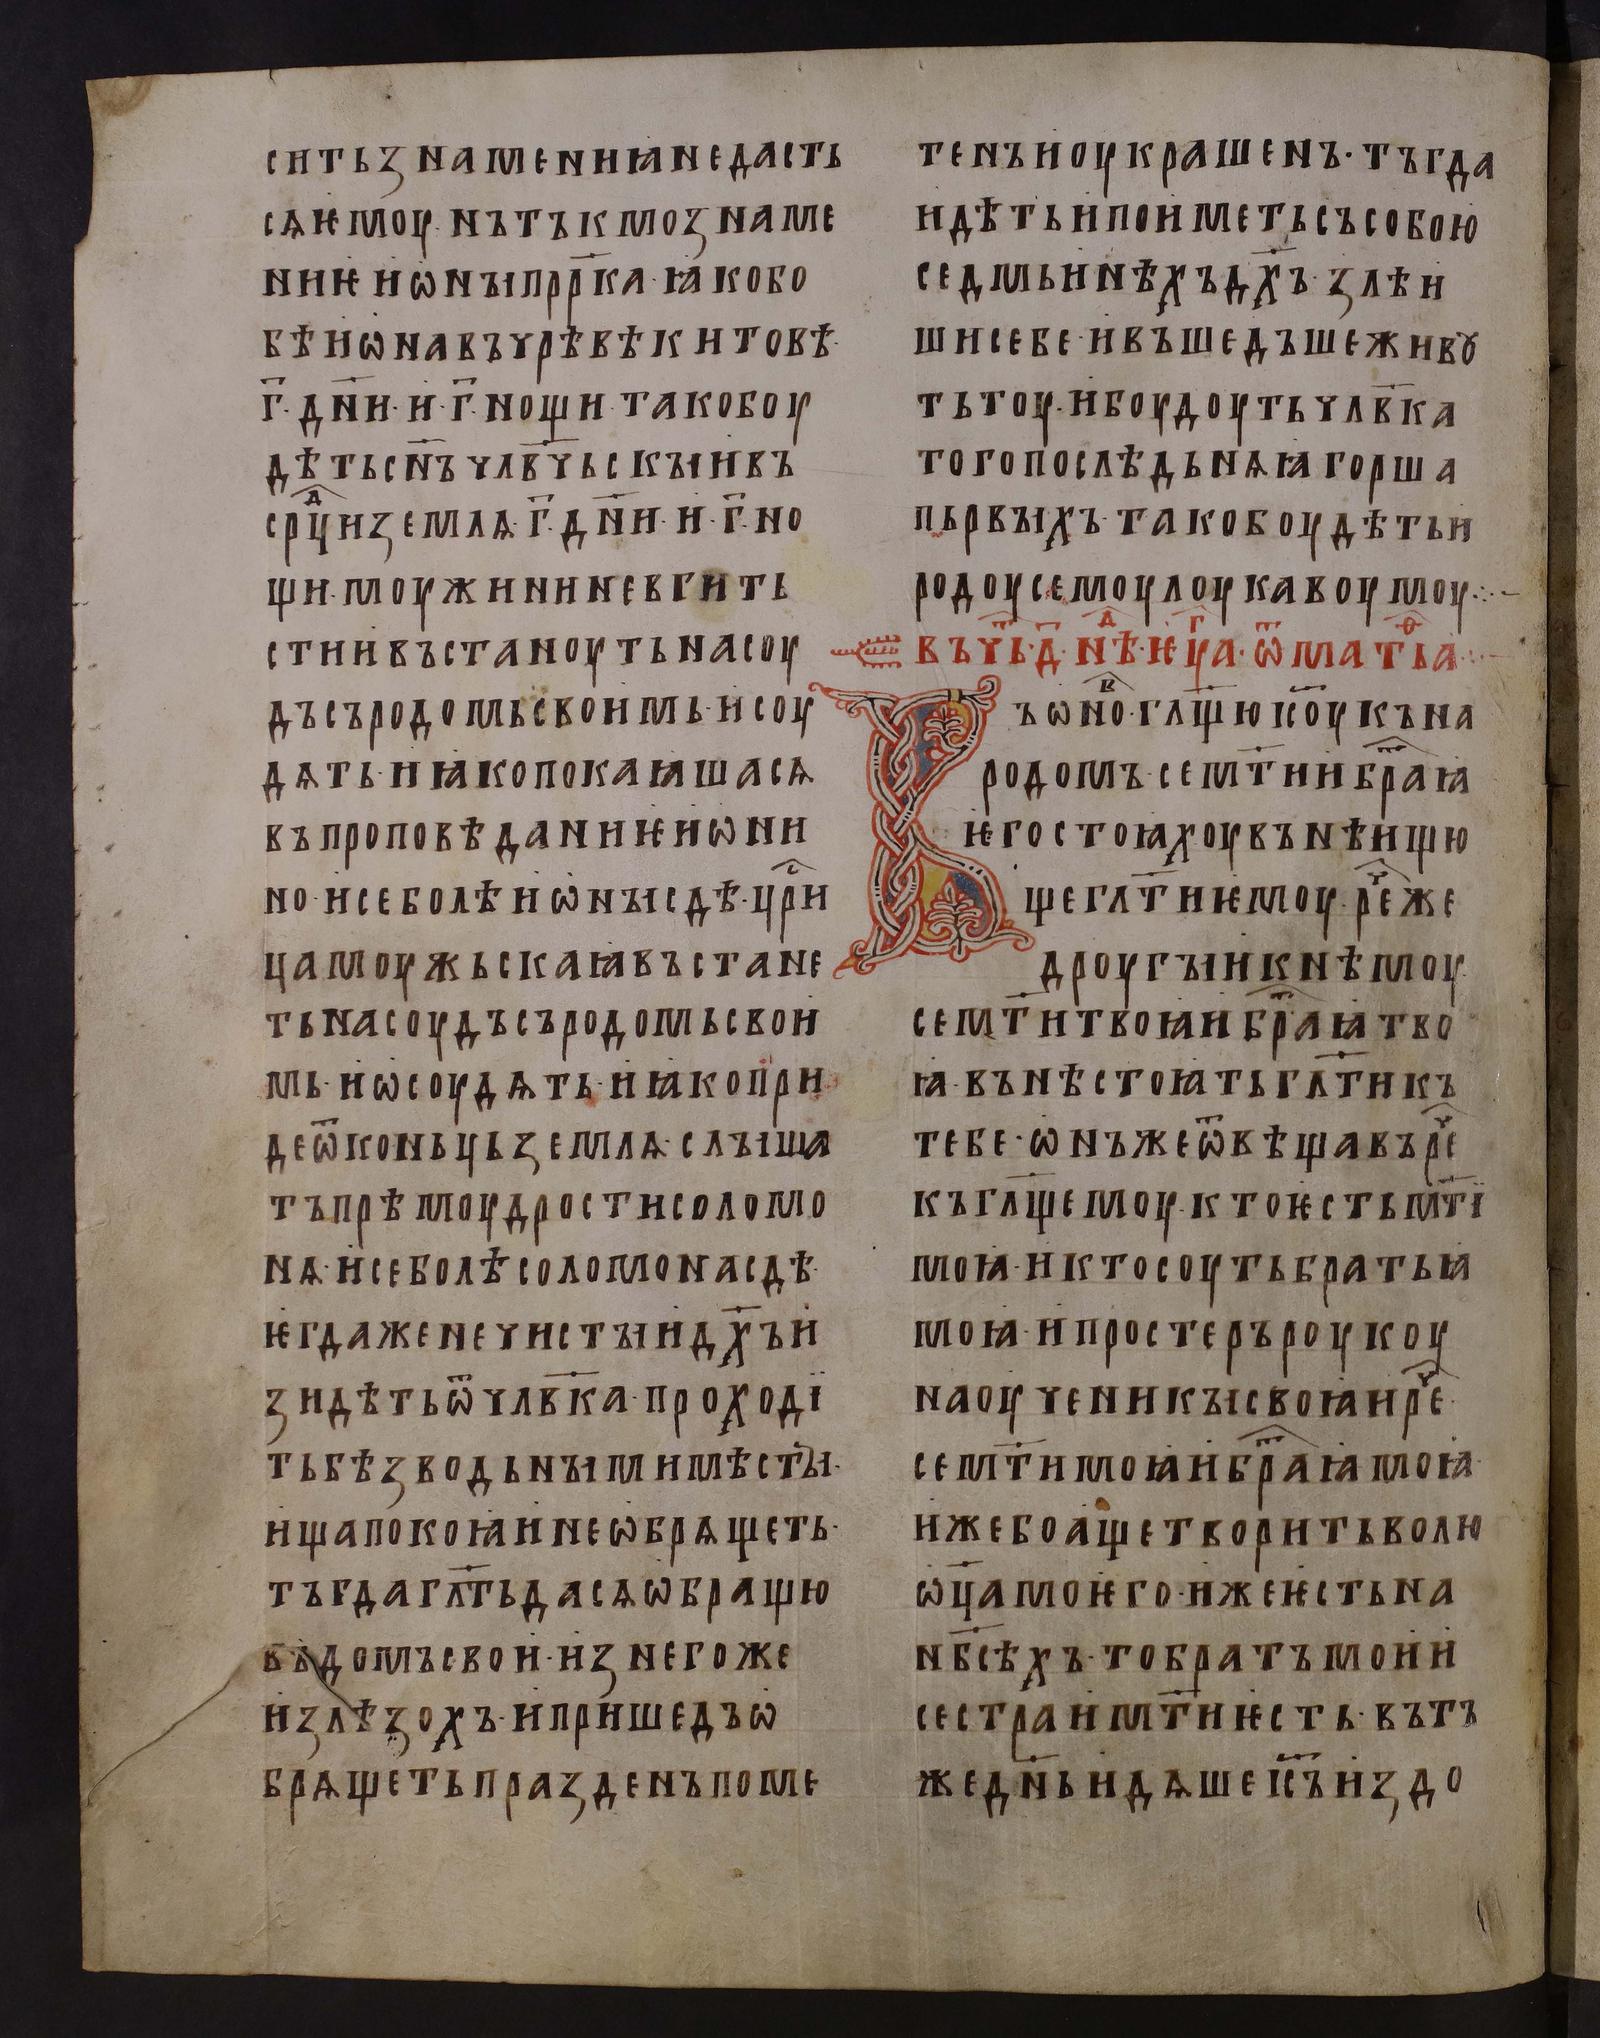 ситьзнамениꙗнедасть
сѧѥмоу·нътъкмознаме
ниѥиѡныпрр҃ка·ꙗкобо
бѣиѡнавъчрѣвѣкитовѣ·
г҃·дн҃и·и·г҃·нощи·такобоу
дѣтьсн҃ъчлв҃чьскыивъ
срⷣциземлѧ·г҃·дн҃и·и·г҃·но
щи·моужининевгить
стиивъстаноутьнасоу
дъсъродомьсвоимь·исоу
дѧть·иꙗкопокаꙗшасѧ
въпроповѣданиѥиѡни
но·исеболѣиѡныسдѣ·црⷭ҇и
цамоужьскаꙗвъстане
тьнасоудъсъродомьсвои
мь·иѡсоудѧть·иꙗкопри
деѿконьцьземлѧ·слыша
тъпрѣмоудростисоломо
нѧ·исеболѣсоломонасдѣ·
ѥгдаженечистыидх҃ъи
зидѣтьѿчлв҃ка·проходї
тьбѣзводьнымимѣсты·
ищапокоꙗинеѡбрѧщеть·
тъгдагл҃тьдасѧѡбращю
въдомъсвои·изнегоже
излѣзохъ·ипришедъѡ
брѧщетьпразденъпоме
тенъиоукрашенъ·тъгда
идѣтьипоиметьсъсобою
седмьинѣхъдх҃ъ·злѣи
шисебе·ивъшедъшеживꙋ
тьтоу·ибоудоутьчлв҃ка
тогопослѣдьнѧꙗгорша
пьрвыхъ·такобоудѣтьи
родоусемоулоукавоумоу
въч҃ь·д҃·нⷣѣ·ѥⷢ҇уа·ѿматⷴ҇ѳа
ъѡⷡ҇но·глщ҃юіс҃оукъна
родомъ·семт҃иибраⷮꙗ
ѥгостоꙗхоувънѣищю
щегл҃тиѥмоу·реⷱ҇же
дроугыикнѣмоу
семт҃итвоꙗибраⷮꙗтво
ꙗ·вънѣстоꙗтьгл҃тикъ
тебе·ѡнъжеѿвѣщавъреⷱ҇
къглщ҃емоу·ктоѥстьмт҃ї
моꙗ·иктосоутьбратьꙗ
моꙗ·ипростеръроукоу
наоученикысвоꙗиреⷱ҇
семт҃имоꙗибраⷮꙗмоꙗ·
ижебоащетворитьволю
ѡц҃амоѥго·ижеѥстьна
нб҃сѣхъ·тобратъмоии
сестраимт҃иѥсть·вътъ
жедн҃ьидѧшеіс҃ъиздо